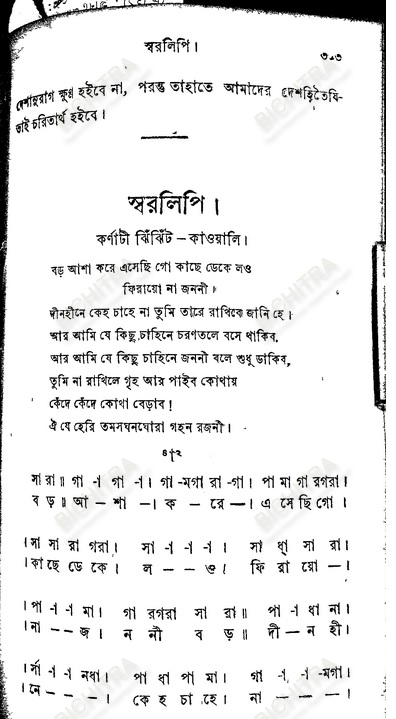 স্বরলিপি।
৩০৩
দেশানুরাগ ক্ষুণ্ণ হইবে না, পরন্তু তাহাতে আমাদের দেশহিতৈষি-
তাই চরিতার্থ হইবে।
স্বরলিপি।
কর্ণাটী ঝিঁঝিট – কাওয়ালি।
বড় আশা করে এসেছি গো কাছে ডেকে লও
ফিরায়ো না জননী।
দীনহীনে কেহ চাহে না তুমি তারে রাখিবে জানি হে।
আর আমি যে কিছু চাহিনে চরণতলে বসে থাকিব,
আর আমি যে কিছু চাহিনে জননী বলে শুধু ডাকিব,
তুমি না রাখিলে গৃহ আর পাইব কোথায়
কেঁদে কেঁদে কোথা বেড়াব!
ঐ যে হেরি তমসঘনঘোরা গহন রজনী।
সা রা॥ গা -া গা -া। গা -মগা রা -গা। পা মা গা রগরা।
ব ড়॥ আ – শা –। ক – রে –। এ সে ছি গো।
।সা সা রা গরা। সা -া -া -া। সা ধ্‌া সা রা।
।কা ছে ডে কে। ল – – ও। ফি রা য়ো –।
।পা -া -া মা। গা রগরা সা রা॥ পা -া ধা না।
।না – – জ। ন নী ব ড়॥ দী – ন হী।
।র্সা -া -া নধা। পা ধা পা মা। গা -া -া -মগা।
।নে – – –। কে হ চা হে। না – – –।
BICHITRA